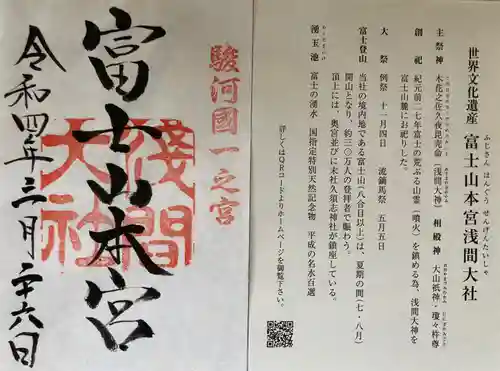 駿河國一之宮
富士山本宮
淺間大社
令和四年三月二十六日
世界文化遺産
富士山本宮浅間大社
ふじさん ほんぐう せんげんたいしゃ
主祭神 木花之佐久夜毘売命(浅間大神) 相殿神 大山祇神・瓊々杵尊
創祀 紀元前二七年富士の荒ぶる山霊(噴火)を鎮める為、浅間大神を
富士山麓にお祀りした。
大祭 例祭 十一月四日 流鏑馬祭 五月五日
富士登山 当社の境内地である富士山(八合目以上)は、夏期の間(七・八月)
開山となり、約三〇万人の登拝者で賑わう。
頂上には、奥宮並びに末社久須志神社が鎮座している。
湧玉池 富士の湧水 国指定特別天然記念物 平成の名水百選
詳しくはQRコードよりホームページを御覧下さい。